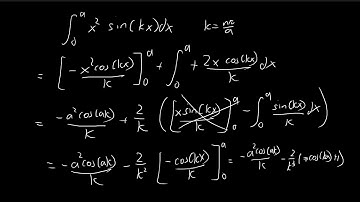 ∫₀ᵃ x² sin(kx)dx    k = nπ/a
= [-x²cos(kx)/k]₀ᵃ + ∫₀ᵃ + 2x cos(kx)/k dx
= -a²cos(ak)/k + 2/k ([x sin(kx)/k]₀ᵃ - ∫₀ᵃ sin(kx)/k dx)
= -a²cos(ak)/k - 2/k² [-cos(kx)/k]₀ᵃ = -a²cos(ak)/k - 2/k³